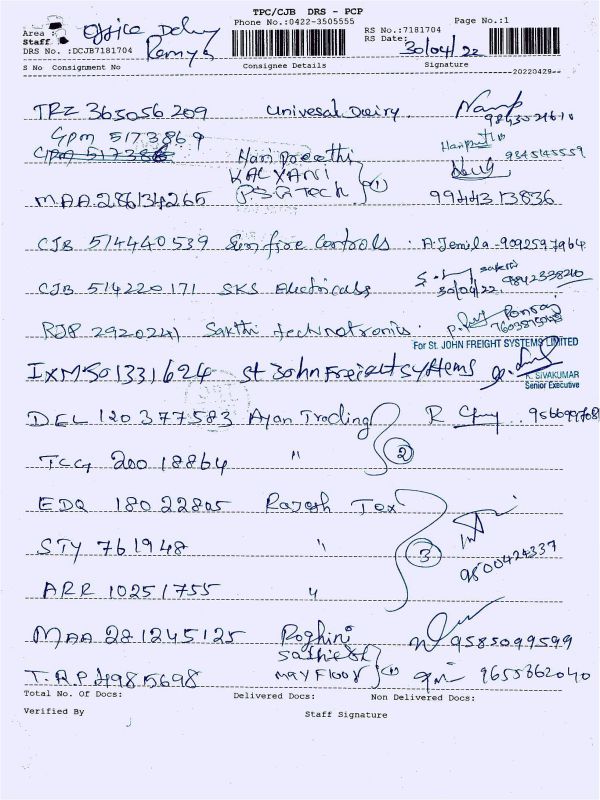 TPC/CJB DRS - PCP
Phone No.:0422-3505555 Page No.:1
Area : Office
Staff
DRS No. :DCJB7181704
RS No.:7181704
RS Date: 30/04/22
S No Consignment No Consignee Details Signature
20220429--
TRZ 365056209 Universal Dairy.
GPM 5173869
Hari preethi 9345145559
KALYANI
MAA 286134265 PSG Tech 1 9944313836
CJB 514440539 Sun fire Controls : A. Jemila - 9092597964
CJB 514220171 SKS Electricals 30/04/22
RJP 2920241 Sakthi technotronics
For St. JOHN FREIGHT SYSTEMS LIMITED
IXM 501331624 St John Freight Systems
K. SIVAKUMAR
Senior Executive
DEL 120377583 Ayan Trading R
TCG 20018864 " 2
EDQ 18022805 Rajesh Tex
STY 761948 " 3 9500424337
ARR 10251755 "
MAA 281245125 Roghini 9585099599
Sathiesh
T.R.P 49815698 May Floor 1 9655362040
Total No. Of Docs: Delivered Docs: Non Delivered Docs:
Verified By Staff Signature